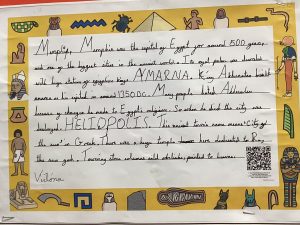 Memphis, Memphis was the capital of Egypt for around 500 years,
and one of the biggest cities in the ancient world. In
the huge statues of AMARNA. King Akhenaten built
amarna as his capital in around 1350 BC. Many people hated Akhenaten
because he changed the Egyptian religion. So when he died the city was
destroyed. HELIOPOLIS. This ancient name means 'City of
the sun' in Greek. There was a huge temple here dedicated to Ra,
the sun god. Towering stone columns called obelisks, pointed to heaven.
Victoria